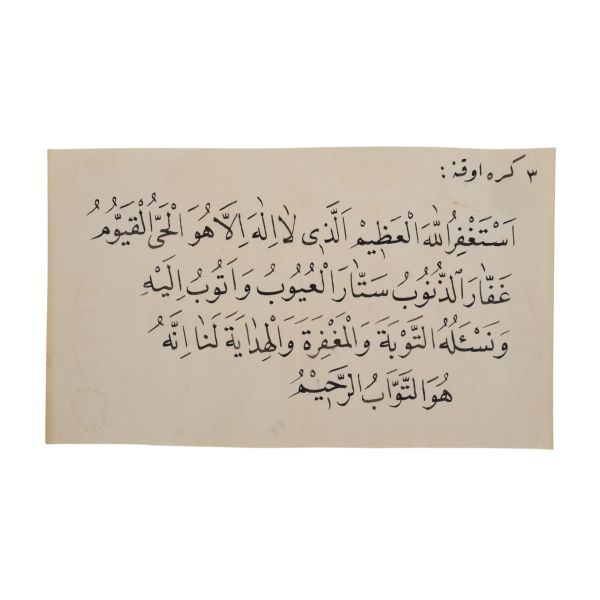 ٣ كره اوقنه :
اَسْتَغْفِرُ اللّٰهَ الْعَظِيْمَ الَّذ۪ى لَا اِلٰهَ اِلَّا هُوَ الْحَىُّ الْقَيُّومُ
غَفَّارَ الذُّنُوبِ سَتَّارَ الْعُيُوبِ وَاَتُوبُ اِلَيْهِ
وَنَسْئَلُهُ التَّوْبَةَ وَالْمَغْفِرَةَ وَالْهِدَايَةَ لَنَا اِنَّهُ
هُوَ التَّوَّابُ الرَّحِيْمُ